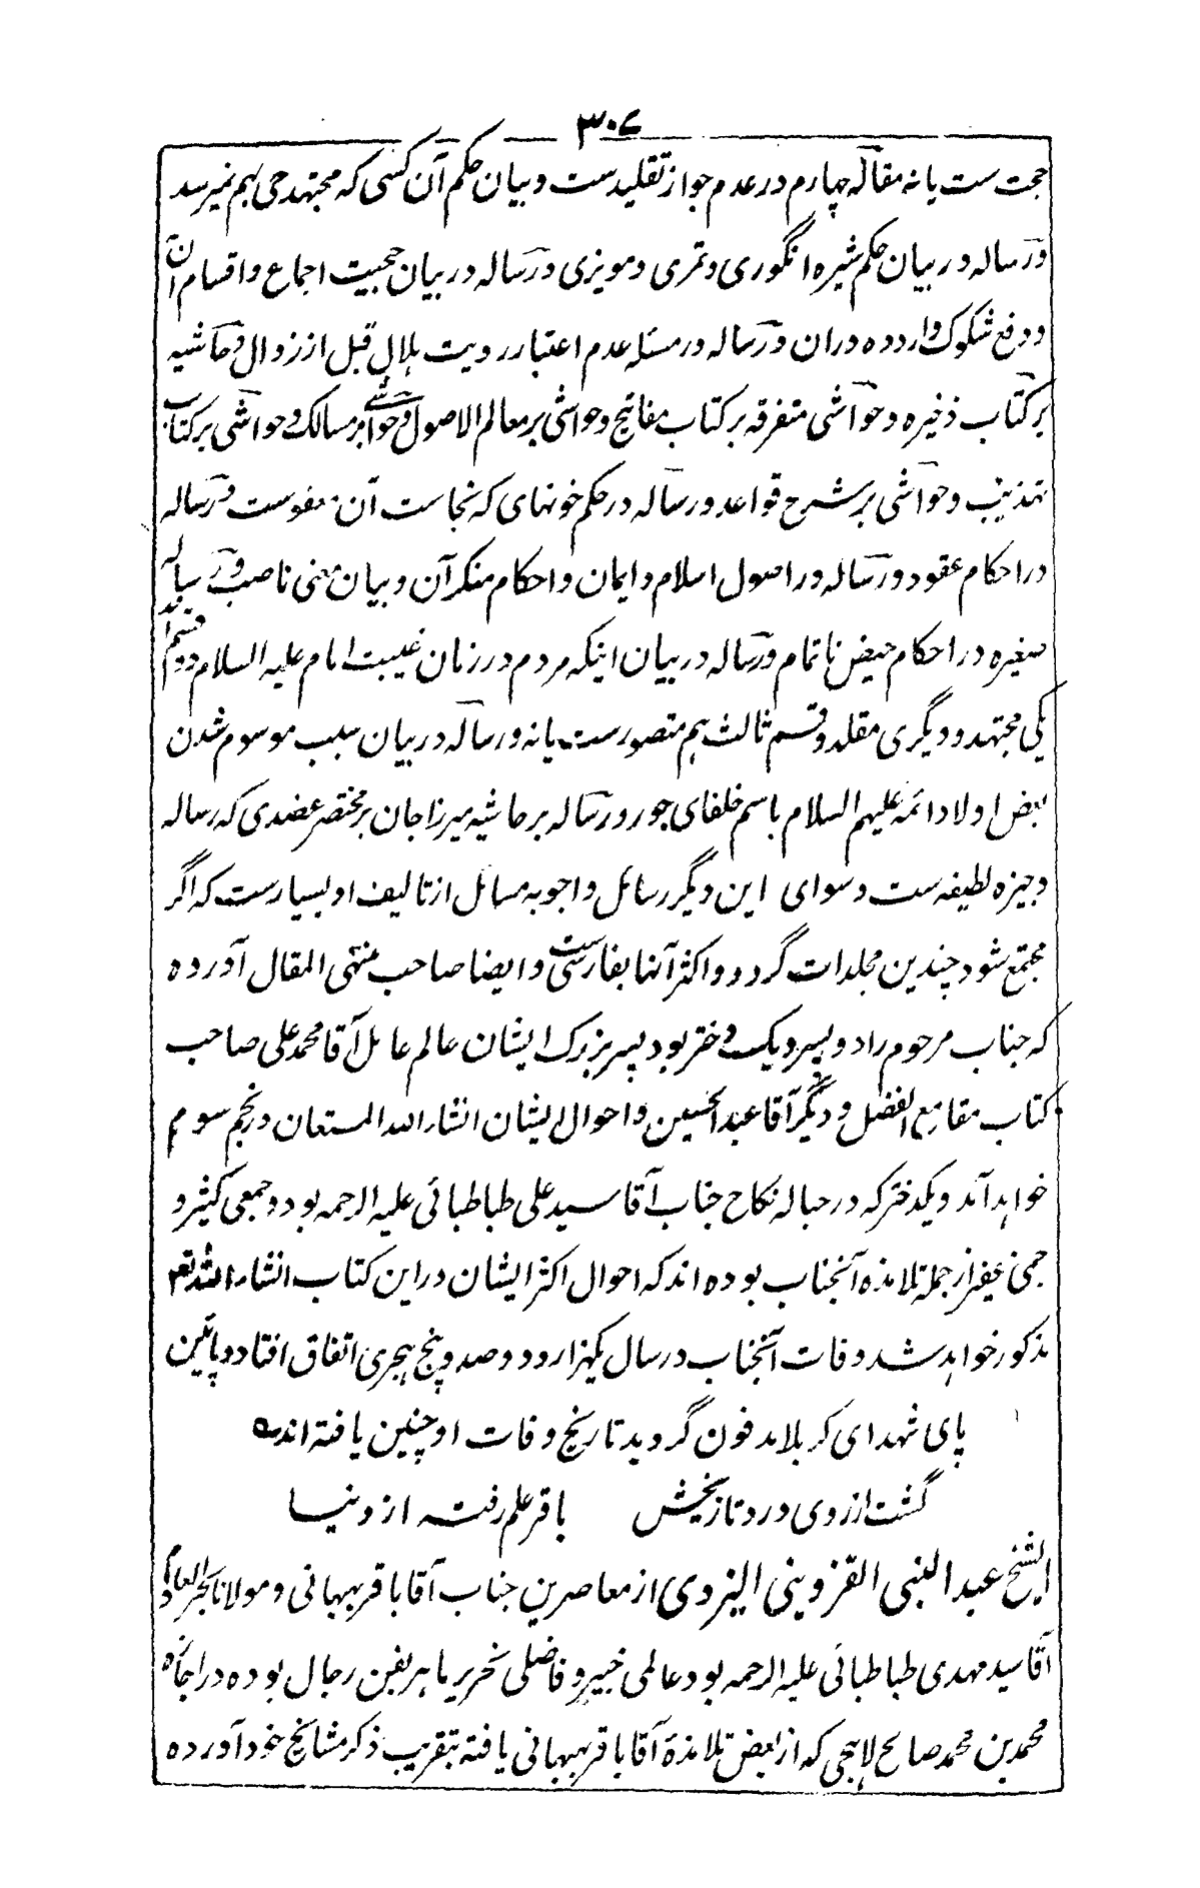 ۳۰۷
حجت ست یا نه مقاله چهارم در عدم جواز تقلیدست و بیان حکم آن کسی که مجتهد حی بهم نمیرسد
و رساله در بیان حکم شیره انگوری و تمری و مویزی و رساله در بیان حجیت اجماع و اقسام آن
و دفع شکوک وارده دران و رساله در مسئله عدم اعتبار رویت هلال قبل از زوال و حاشیه
بر کتاب ذخیره و حواشی متفرقه بر کتاب مفاتیح و حواشی بر معالم الاصول و حواشی بر مسالک و حواشی بر کتاب
تهذیب و حواشی بر شرح قواعد و رساله در حکم خونهای که نجاست آن معفوست و رساله
در احکام عقود و رساله در اصول اسلام و ایمان و احکام منکر آن و بیان معنی ناصب و رساله
صغیره در احکام حیض ناتمام و رساله در بیان اینکه مردم در زمان غیبت امام علیه السلام دو قسم اند
یکی مجتهد و دیگری مقلد و قسم ثالث هم متصورست یا نه و رساله در بیان سبب موسوم شدن
بعض اولاد ائمه علیهم السلام باسم خلفای جور و رساله بر حاشیه میرزا جان بر مختصر عضدی که رساله
وجیزه لطیفه ست و سوای این دیگر رسائل و اجوبه مسائل از تالیف او بسیارست که اگر
مجتمع شود چندین مجلدات گردد و اکثر آنها بفارسی ست و ایضا صاحب منتهی المقال آورده
که جناب مرحوم را دو پسر و یک دختر بود پسر بزرک ایشان عالم عامل آقا محمد علی صاحب
کتاب مقامع الفضل و دیگر آقا عبد الحسین و احوال ایشان انشاء الله المستعان در نجم سوم
خواهد آمد و یکدختر که در حباله نکاح جناب آقا سید علی طباطبائی علیه الرحمه بود و جمعی کثیر و
جمی غفیر از جمله تلامذه آنجناب بوده اند که احوال اکثر ایشان در این کتاب انشاء الله تع
مذکور خواهد شد وفات آنجناب در سال یکهزار و دو صد و پنج هجری اتفاق افتاد و پائین
پای شهدای کربلا مدفون گردید تاریخ وفات او چنین یافته اند
گشت از روی درد تاریخش باقر علم رفت از دنیا
الشیخ عبد النبی القزوینی الیزدی از معاصرین جناب آقا باقر بهبهانی و مولانا بحر العلوم
آقا سید مهدی طباطبائی علیه الرحمه بود عالمی خبیر و فاضلی نحریر ماهر بفن رجال بوده در اجازه
محمد بن محمد صالح لاهجی که از بعض تلامذهٔ آقا باقر بهبهانی یافته بتقریب ذکر مشائخ خود آورده